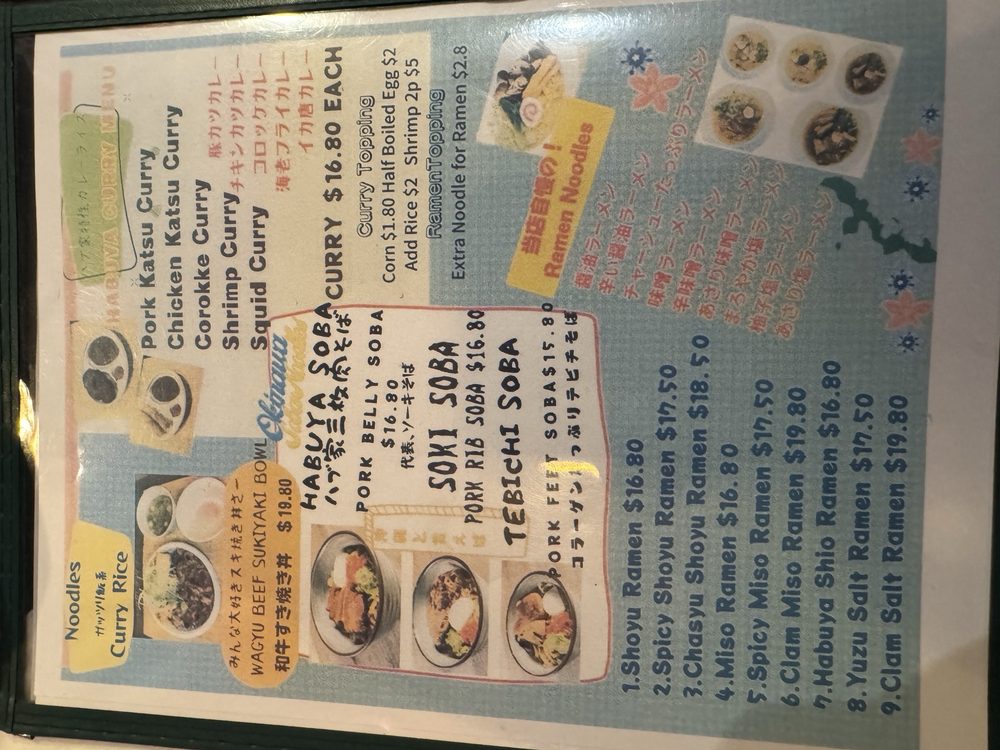 Noodles
ガッツリ飯系
Curry Rice
ハブ家特性カレーライス
HABUYA CURRY MENU
Pork Katsu Curry
Chicken Katsu Curry
Corokke Curry
Shrimp Curry
Squid Curry
豚カツカレー
チキンカツカレー
コロッケカレー
海老フライカレー
イカ唐カレー
CURRY $16.80 EACH
Curry Topping
Corn $1.80 Half Boiled Egg $2
Add Rice $2 Shrimp 2p $5
RamenTopping
Extra Noodle for Ramen $2.8
みんな大好きスキ焼き丼さー
WAGYU BEEF SUKIYAKI BOWL
和牛すき焼き丼 $19.80
Okinawa
沖縄と言えば
HABUYA SOBA
ハブ家三枚肉そば
PORK BELLY SOBA
$16.80
代表、ソーキそば
SOKI SOBA
PORK RIB SOBA $16.80
TEBICHI SOBA
PORK FEET SOBA$15.80
コラーゲンたっぷりテビチそば
当店自慢の!
Ramen Noodles
醤油ラーメン
辛い醤油ラーメン
チャーシューたっぷりラーメン
味噌ラーメン
辛味噌ラーメン
あさり味噌ラーメン
まろやか塩ラーメン
柚子塩ラーメン
あさり塩ラーメン
1.Shoyu Ramen $16.80
2.Spicy Shoyu Ramen $17.50
3.Chasyu Shoyu Ramen $18.50
4.Miso Ramen $16.80
5.Spicy Miso Ramen $17.50
6.Clam Miso Ramen $19.80
7.Habuya Shio Ramen $16.80
8.Yuzu Salt Ramen $17.50
9.Clam Salt Ramen $19.80